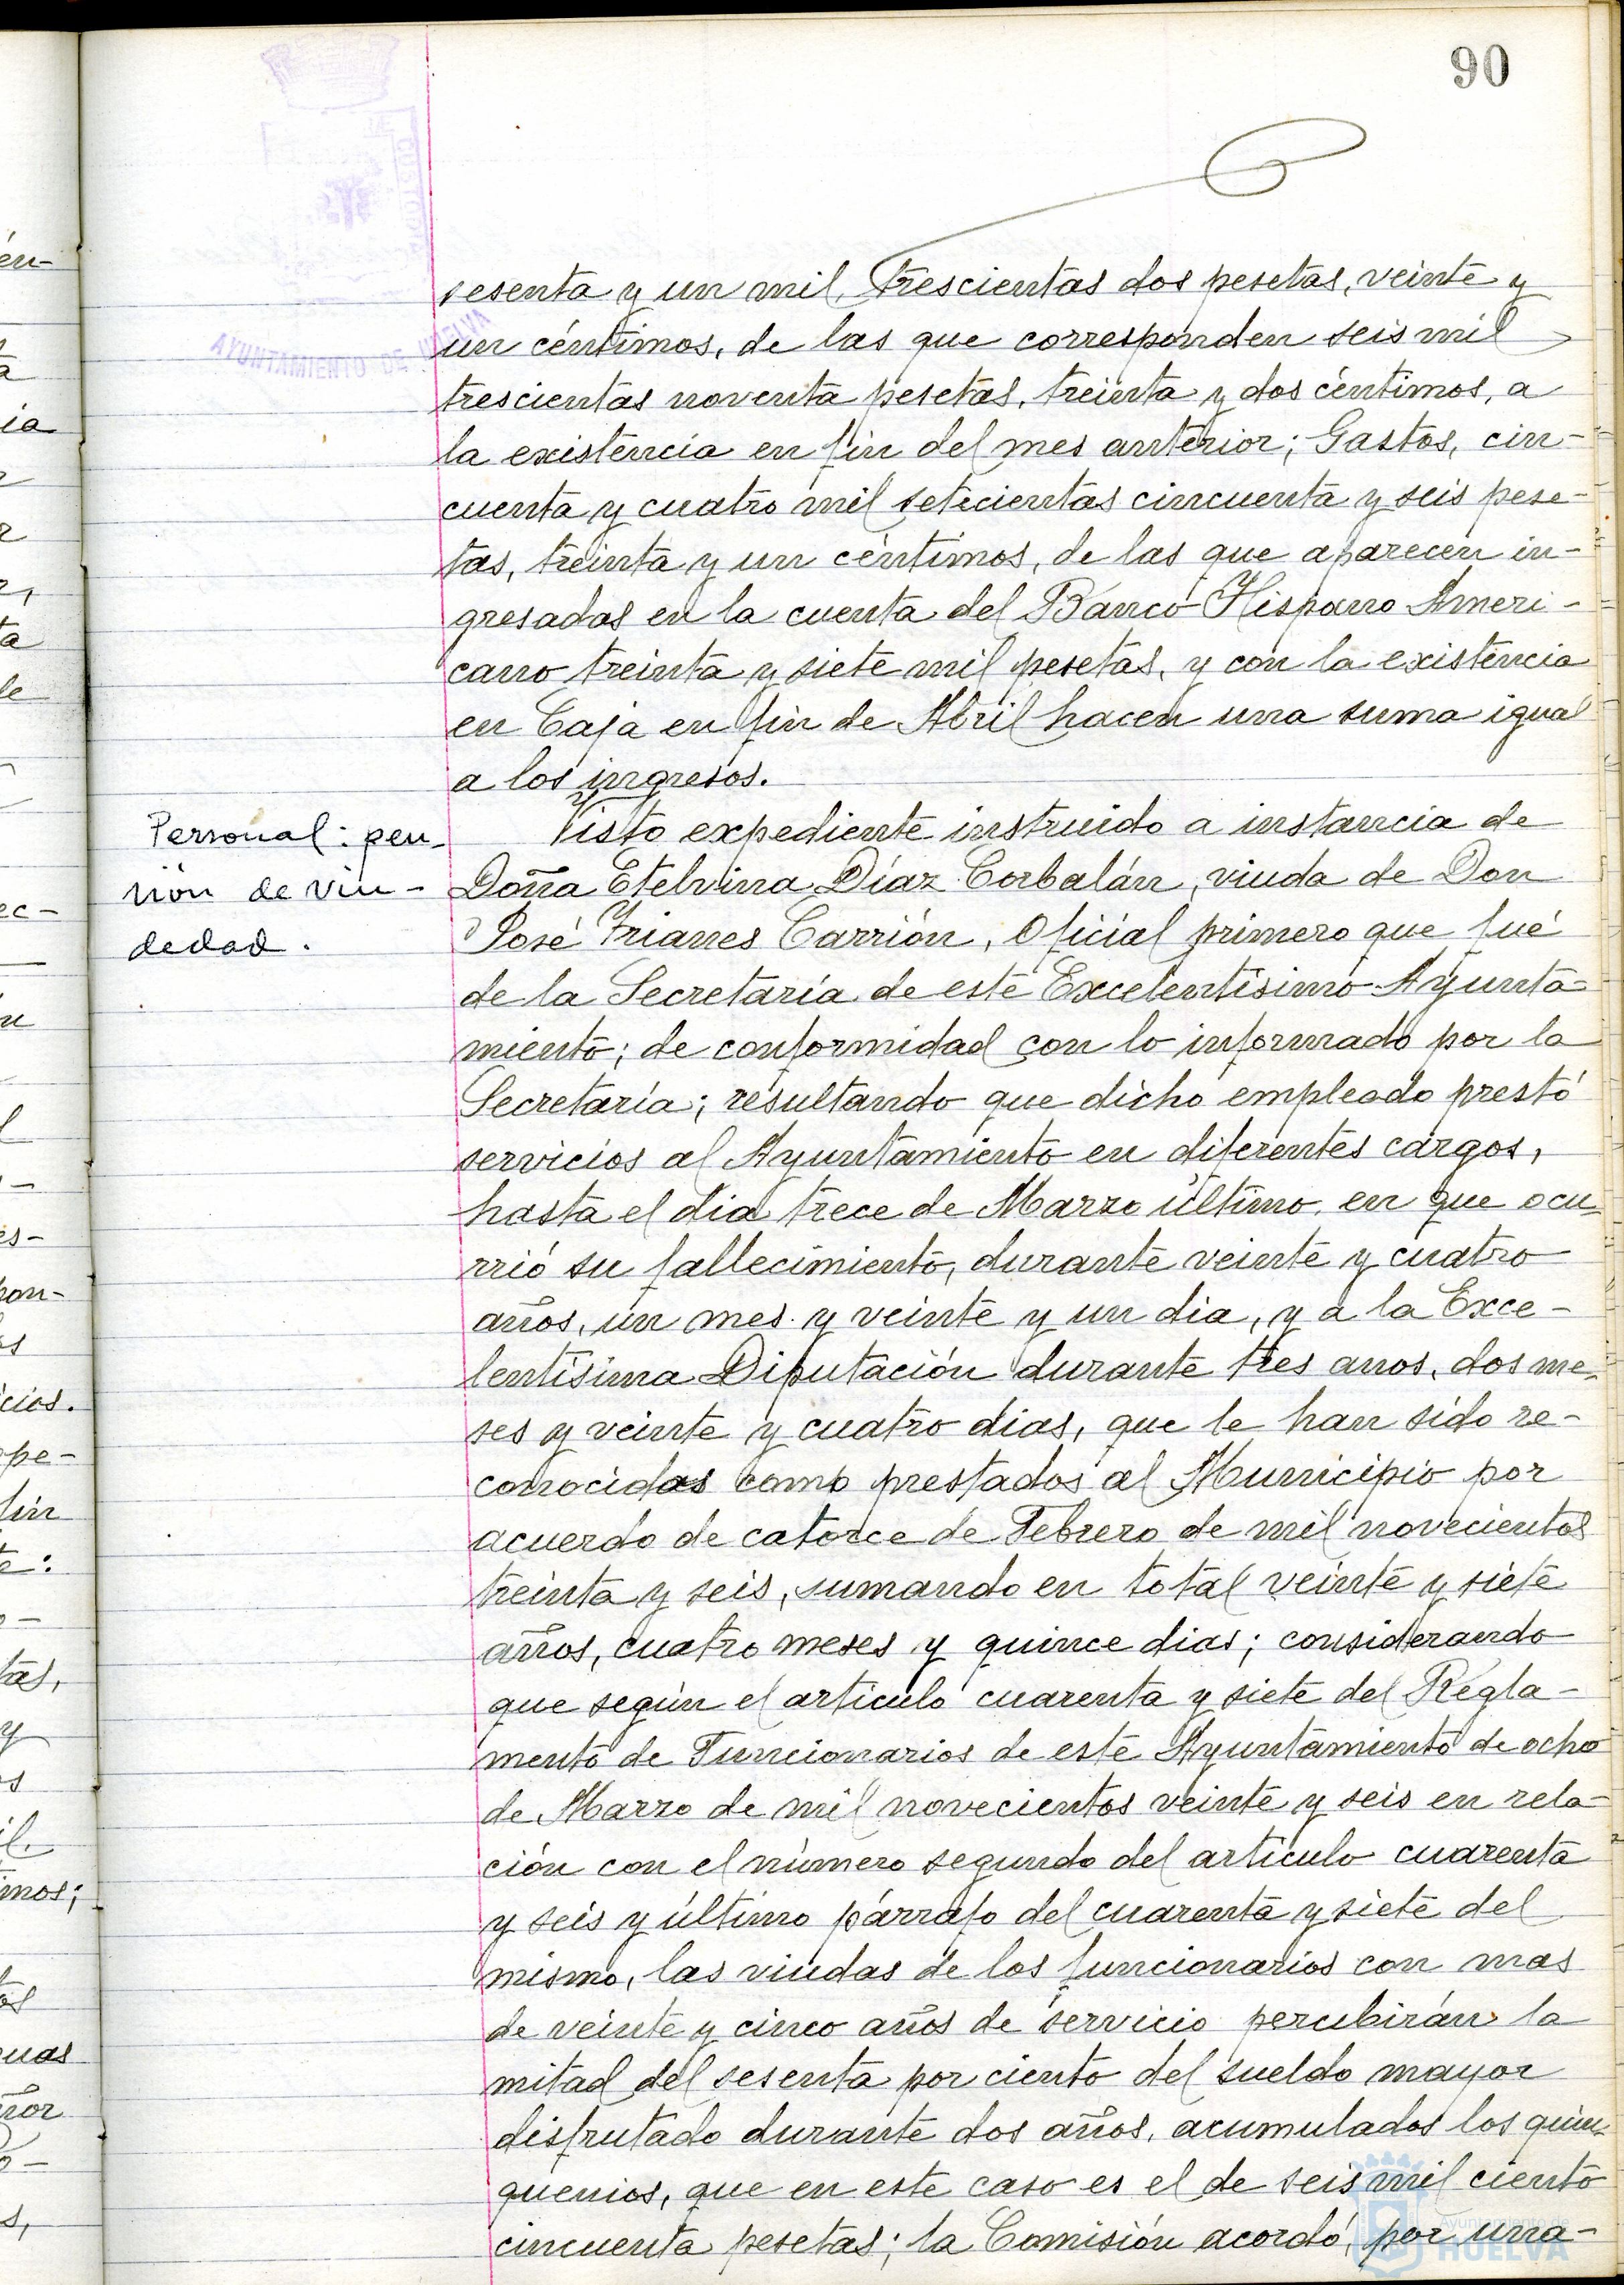 90
AYUNTAMIENTO DE HUELVA
sesenta y un mil, trescientas dos pesetas, veinte y
un céntimos, de las que corresponden seis mil
trescientas noventa pesetas, treinta y dos céntimos, a
la existencia en fin del mes anterior; Gastos, cin-
cuenta y cuatro mil setecientas cincuenta y seis pese-
tas, treinta y un céntimos, de las que aparecen in-
gresadas en la cuenta del Banco Hispano Ameri-
cano treinta y siete mil pesetas, y con la existencia
en Caja en fin de Abril hacen una suma igual
a los ingresos.
Personal: pen-
sión de viu-
dedad.
Visto expediente instruido a instancia de
Doña Etelvina Díaz Corbalán, viuda de Don
José Frianes Carrión, Oficial primero que fué
de la Secretaría de este Excelentísimo Ayunta-
miento; de conformidad con lo informado por la
Secretaría; resultando que dicho empleado prestó
servicios al Ayuntamiento en diferentes cargos,
hasta el dia trece de Marzo último, en que ocu-
rrió su fallecimiento, durante veinte y cuatro
años, un mes y veinte y un dia, y a la Exce-
lentísima Diputación durante tres anos, dos me-
ses y veinte y cuatro dias, que le han sido re-
conocidas como prestados al Municipio por
acuerdo de catorce de Febrero de mil novecientos
treinta y seis, sumando en total veinte y siete
años, cuatro meses y quince dias; considerando
que según el articulo cuarenta y siete del Regla-
mento de Funcionarios de este Ayuntamiento de ocho
de Marzo de mil novecientos veinte y seis en rela-
ción con el número segundo del articulo cuarenta
y seis y último párrafo del cuarenta y siete del
mismo, las viudas de los funcionarios con mas
de veinte y cinco años de servicio percibirán la
mitad del sesenta por ciento del sueldo mayor
disfrutado durante dos años, acumulados los quin-
quenios, que en este caso es el de seis mil ciento
cincuenta pesetas; la Comisión acordó, por una-
Ayuntamiento de
HUELVA